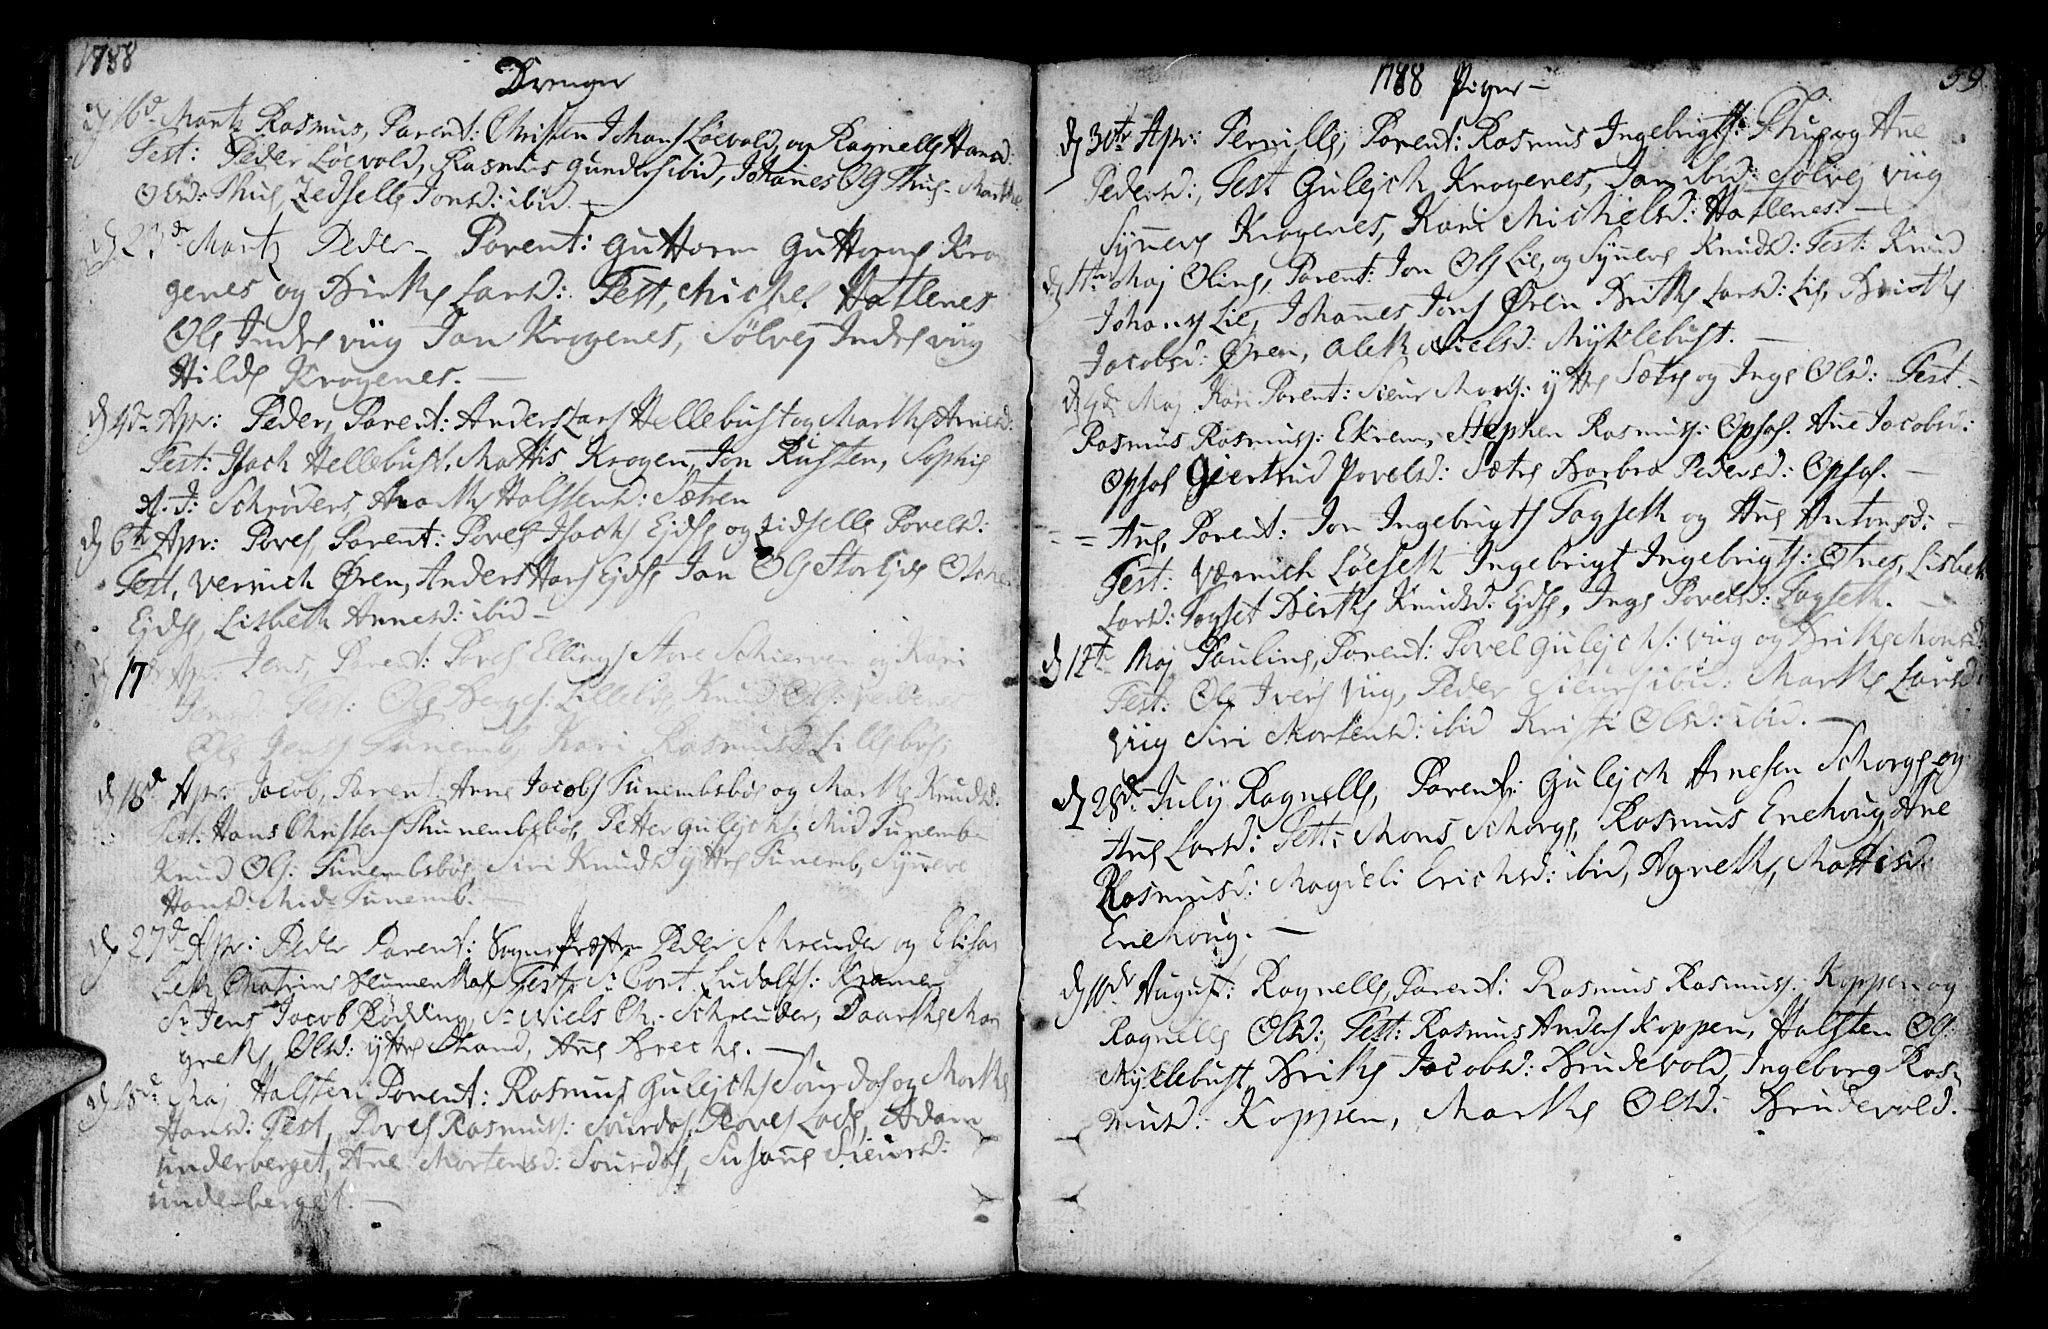 1788
Drenger
d 16de Martz Rasmus, Parent: Christen Johans Løevold, og Ragnelle Hansd:
Test: Peder Løevold, Rasmus Gunders ibid, Johannes Ols Thue, Marthe
Olsd: Thue, Zedselle Jonsd: ibid. —
d 23de Martz Peder — Parent: Guttorm Guttorms Kro
genes og Birthe Larsd: Test, Michel Hatlenes
Ole Indre Viig Jan Krogenes, Sølvej Indre Viig
Hilde Krogenes. —
d 4de Apr: Peder, Parent: Anders Lars Hellebust og Marthe Arnesd:
Test: Isach Hellebust, Mattis Krogen, Jon Rusten, Sophie
A. J: Schrøders, Marthe Halstensd: Sætren
d 6te Apr: Povel, Parent: Povel Isachs Ejdse og Zidselle Povelsd:
Test, Vernich Øren, Anders Hans Ejdse, Jan Ols Storejde Oline
Ejdse, Lisbeth Annesd: ibid —
d 17de Apr: Jens, Parent: Povel Ellings Store Schierven og Kari
Jensd: Test: Ole Lillebøe, Knud Ols:
Ole Jenss Tunemb, Kari Rasmusd: Lillebøe
d 18de Apr: Jacob, Parent: Arne Jacobs Tunembsbøe og Marthe Knudsd:
Test: Hans Christens Thunembsbøe, Petter Gulejchs: Mid Tunemb
Knud Ols: Tunembsbøe, Siri Knudsd: Yttre Tunemb, Synneve
Hansd: Mid Tunemb. —
d 27de Apr: Peder Parent: Sogne Præsten Peder Schreuder og Elisa
beth Chatrine Blumenthal, Test: Sr Cort Ludolfs: Kramer
Sr Jens Jacob Rødding, Sr Niels Ch: Schreuder, Daarthe Mar
grethe Olsd: Yttre Strand, Ane Brechs. —
d 18de Maj Halsten Parent: Rasmus Gulejchs Sourdal og Marthe
Hansd: Test, Povel Rasmuss: Sourdal, Povel Lade, Adam
underberget, Ane Mortensd: Sourdal, Susanne Sieursd:
underberget. —
1788 Piger —
59
d 30te Apr: Pernille, Parent: Rasmus Ingebrigts: Thue og Ane
Pedersd:, Test Gulejch Krogenes, Jan ibid: Sølvej Viig
Synneve Krogenes, Kari Michelsd: Hatlenes. —
d 1te Maj Oline, Parent: Jon Ols Lie, og Synneve Knudsd: Test: Knud
Johans Lie, Johannes Jons Øren Birthe Larsd: Lie, Birthe
Jacobsd: Øren, Aleth Nielsd: Myklebust. —
d 4de Maj Kari Parent: Sieur Mons: Yttre Sætre og Inge Olsd: Test.
Rasmus Rasmuss: Ekrem, Stephen Rasmuss: Opsal. Ane Jacobsd:
Opsal Giertrud Povelsd: Sætre Barbra Pedersd: Opsal. —
— = Ane, Parent: Jon Ingebrigts Fagseth og Ane Antonsd: —
Test: Værnich Løeseth Ingebrigt Ingebrigts: Otnes, Lisbeth
Larsd: Fagset Birthe Knudsd: Ejdse, Inge Povelsd: Fagseth. —
d 12te Maj Pauline, Parent: Povel Gulejchs: Viig og Birthe Monsd:
Test: Ole Ivers Viig, Peder Sieurs ibid: Marthe Larsd:
Viig Siri Mortensd: ibid Kristi Olsd: ibid. —
d 28de July Ragnelle, Parent: Gulejch Arnesen Schorge og
Ane Larsd: Test: Mons Schorge, Rasmus Enehoug, Ane
Rasmusd: Magdeli Erichsd: ibid, Agnethe, Mattisd:
Enehoug. —
d 10de August: Ragnelle, Parent: Rasmus Rasmuss: Koppen og
Ragnelle Olsd: Test: Rasmus Anders Koppen, Halsten Ols:
Myklebust, Birthe Jacobsd: Brudevold, Ingeborg Ras=
musd: Koppen, Marthe Olsd: Brudevold. —